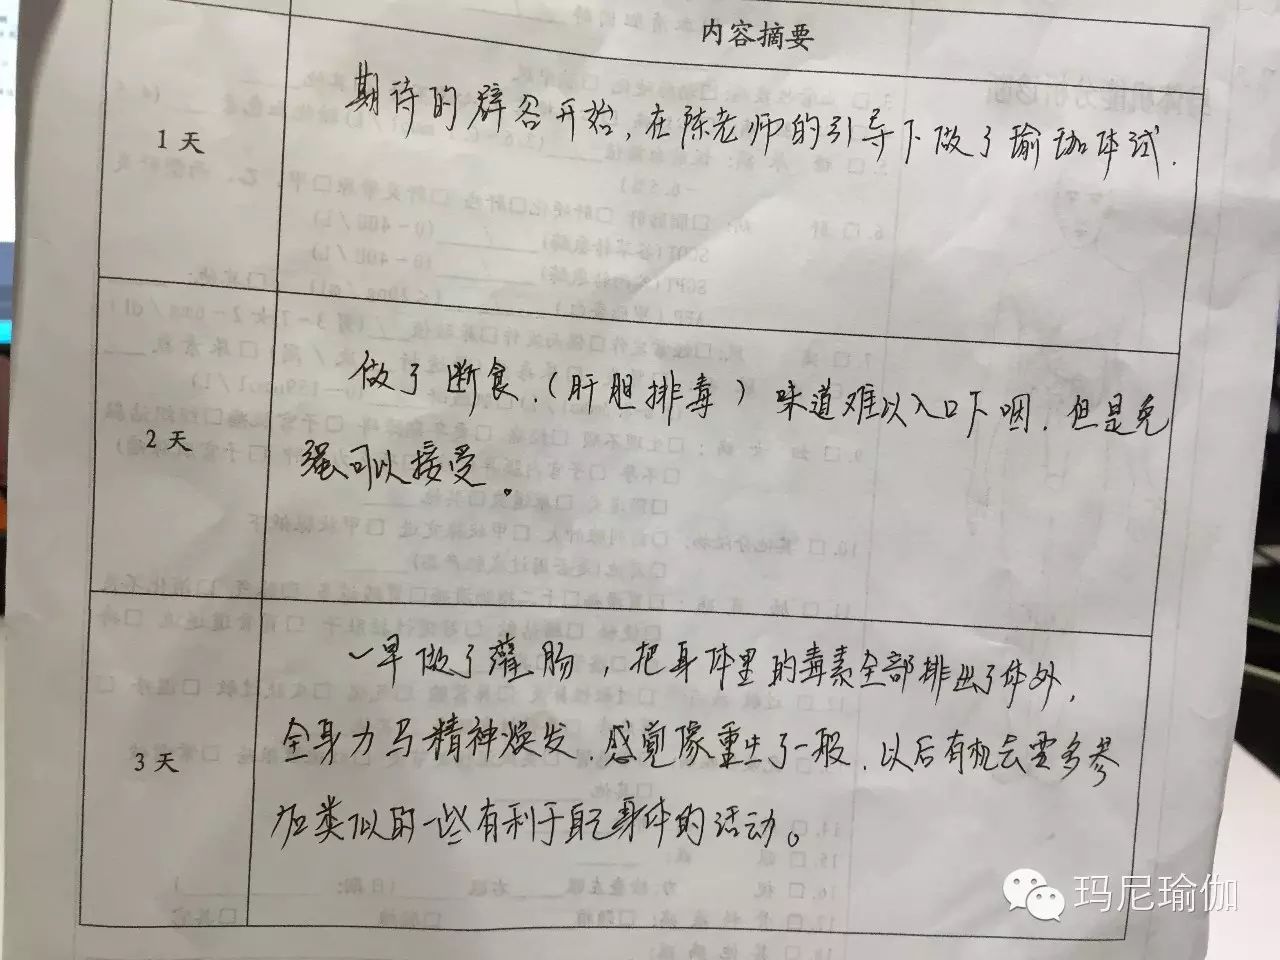 内容摘要
1天
期待的辟谷开始,在陈老师的引导下做了瑜珈体试.
2天
做了断食.(肝胆排毒)味道难以入口下咽.但是免
强可以接受。
3天
一早做了灌肠,把身体里的毒素全部排出了体外,
全身力马精神焕发.感觉像重生了一般.以后有机会要多参
加类似的一些有利于自己身体的活动。
玛尼瑜伽